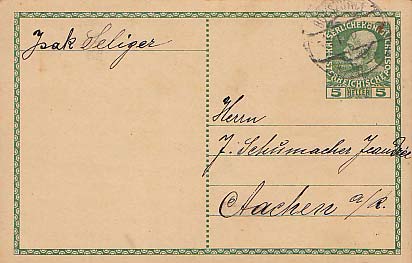 Isak Seliger
KAISERLICHE KÖNIGLICHE
ÖSTERREICHISCHE POST
5 HELLER 5
Herrn
J. Schumacher
Aachen a/R.